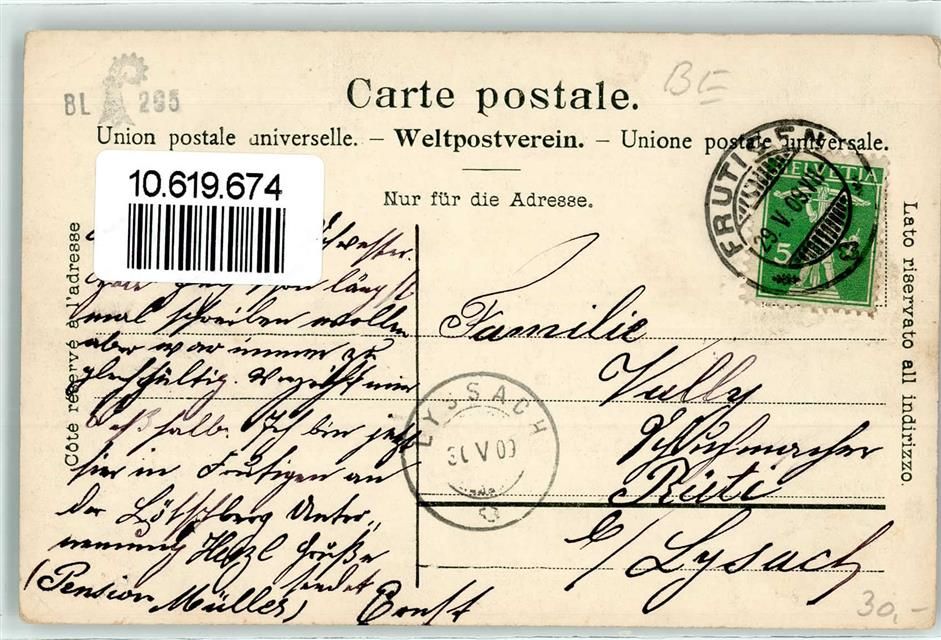 BL 295
BE
Carte postale.
Union postale universelle. — Weltpostverein. — Unione postale universale.
Nur für die Adresse.
10.619.674
Côté réservé à l'adresse
Lato riservato all indirizzo.
FRUTIGEN
29 V 09
HELVETIA
5
LYSSACH
31 V 09
Schwester.
schon längst
mal schreiben wollen
aber war immer zu
gleichgültig. Verzeiht mir
deßhalb. Ich bin jetzt
hier in Frutigen an
der Lötschberg Unter„
nemung Herzl Grüße
sendet
(Pension Müller) Ernst
Familie
Vully
Schuhmacher
Rüti
b/ Lysach
30,-